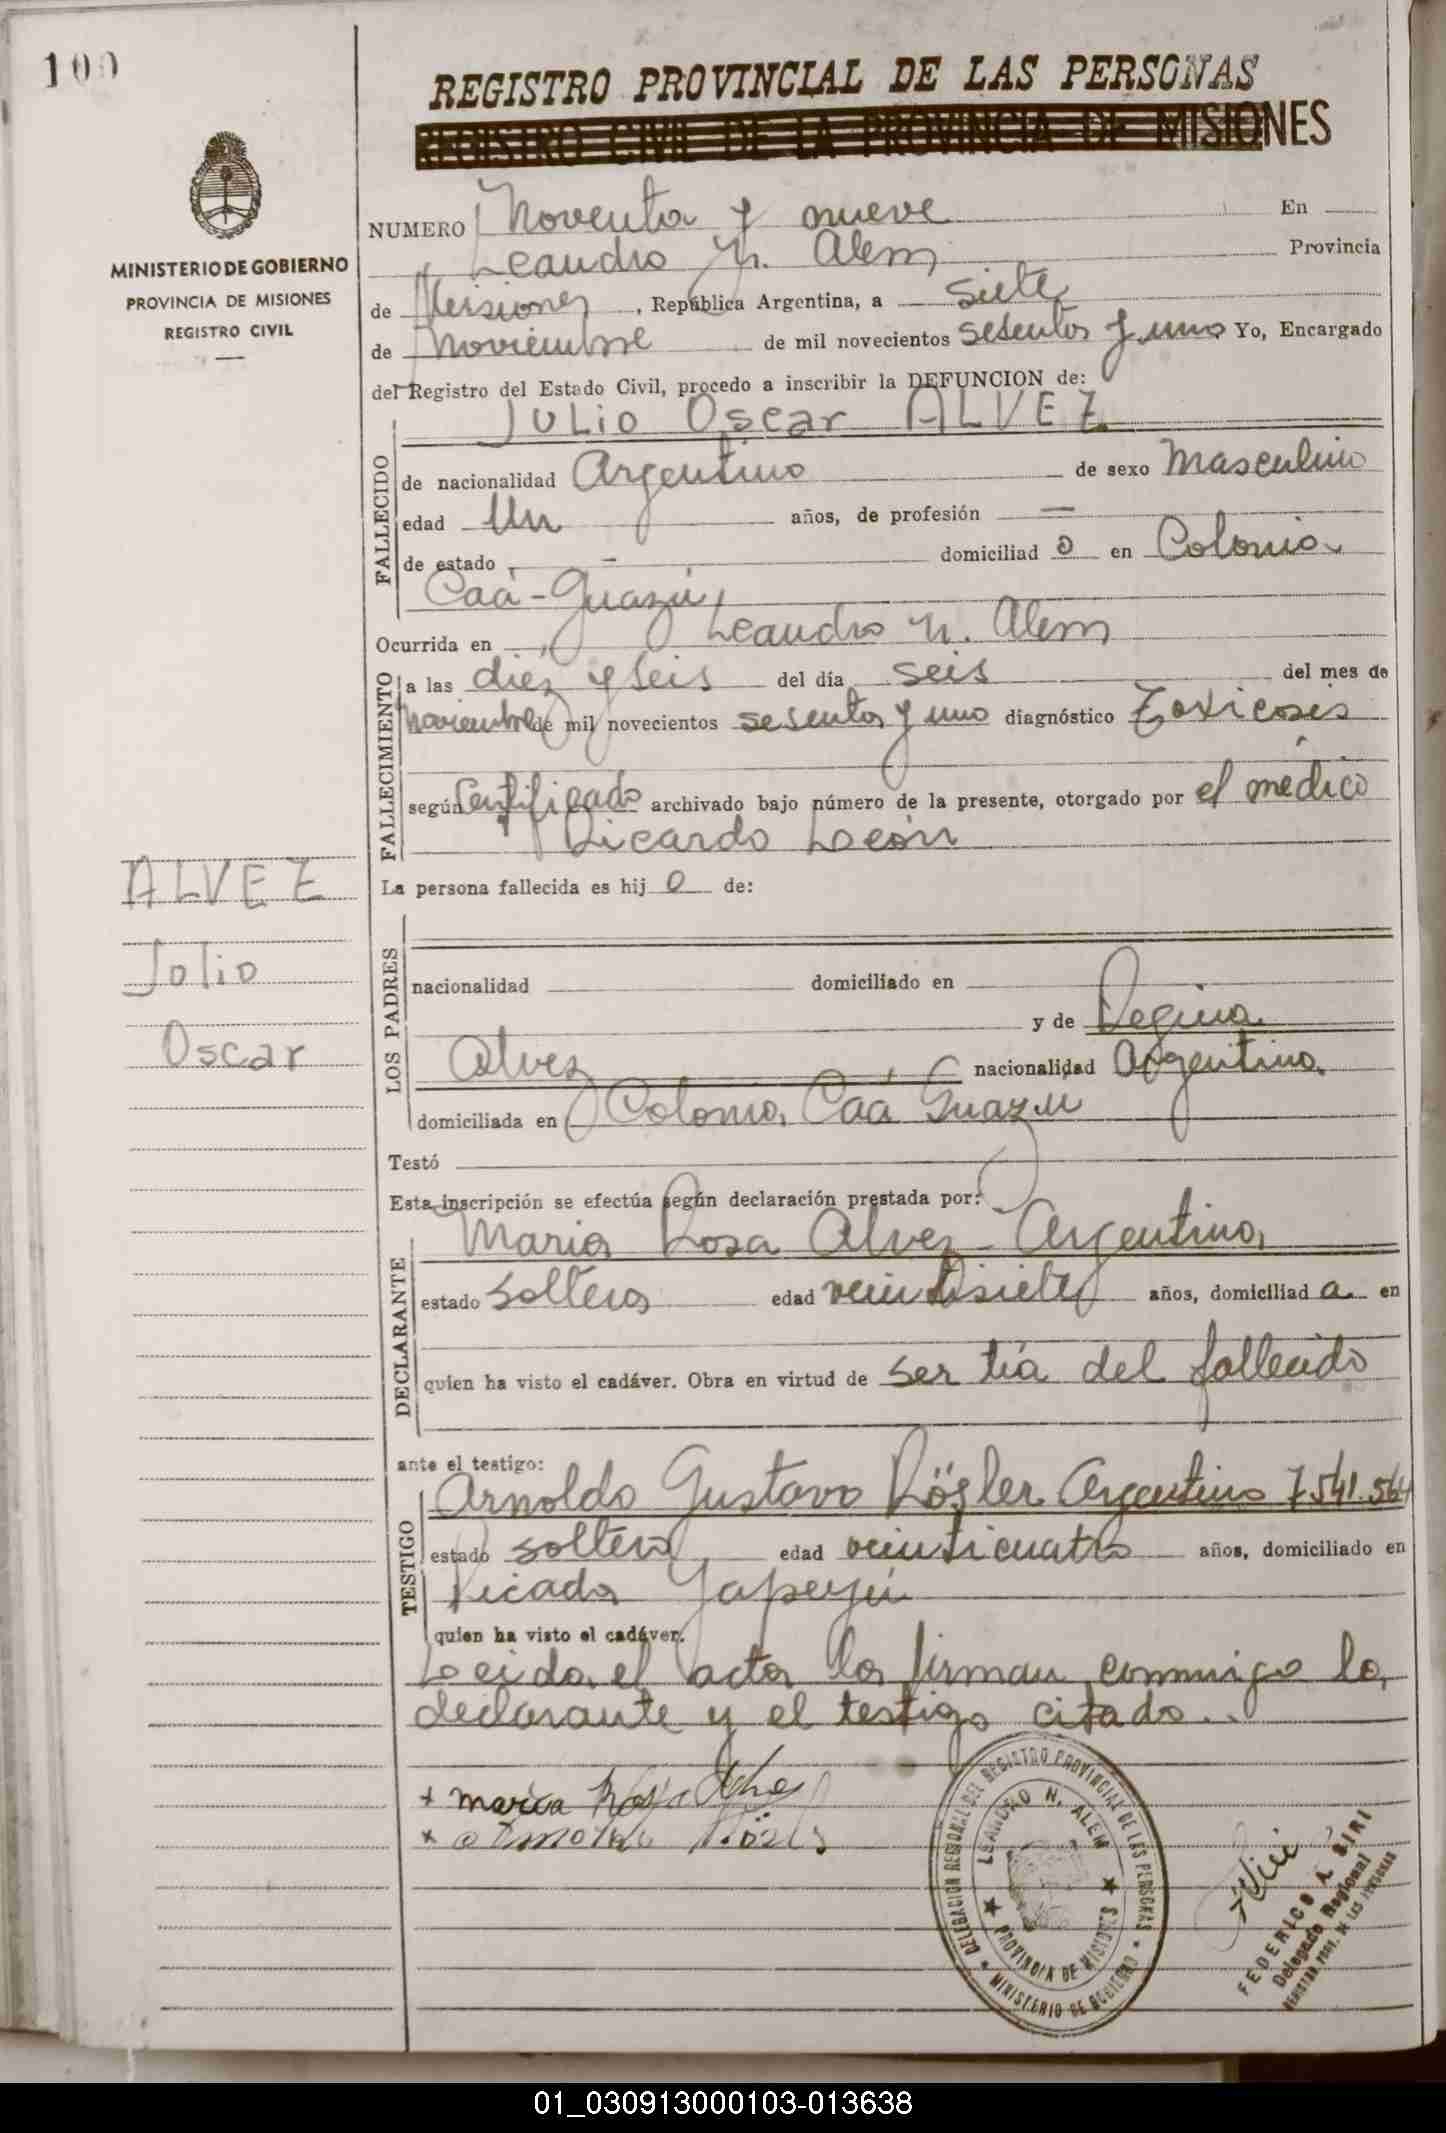 100
REGISTRO PROVINCIAL DE LAS PERSONAS
REGISTRO CIVIL DE LA PROVINCIA DE MISIONES
MINISTERIO DE GOBIERNO
PROVINCIA DE MISIONES
REGISTRO CIVIL
NUMERO Noventa y nueve En
Leandro N. Alem Provincia
de Misiones, República Argentina, a siete
de Noviembre de mil novecientos sesenta y uno Yo, Encargado
del Registro del Estado Civil, procedo a inscribir la DEFUNCION de:
Julio Oscar ALVEZ
FALLECIDO
de nacionalidad Argentino de sexo Masculino
edad Un años, de profesión —
de estado — domiciliad o en Colonia
Caá-Guazú,
Ocurrida en Leandro N. Alem
FALLECIMIENTO
a las diez y seis del día seis del mes de
Noviembre de mil novecientos sesenta y uno diagnóstico Toxicosis
según Certificado archivado bajo número de la presente, otorgado por el médico
Ricardo León
La persona fallecida es hij o de:
ALVEZ
Julio
Oscar
LOS PADRES
nacionalidad domiciliado en
y de Regina
Alvez nacionalidad Argentina
domiciliada en Colonia Caá Guazu
Testó
Esta inscripción se efectúa según declaración prestada por:
Maria Rosa Alvez - Argentina
DECLARANTE
estado soltera edad veintisiete años, domiciliad a en
quien ha visto el cadáver. Obra en virtud de ser tía del fallecido
ante el testigo:
Arnoldo Gustavo Rösler Argentino 7.541.564
TESTIGO
estado soltero edad veinticuatro años, domiciliado en
Picada Yapeyú
quien ha visto el cadáver.
Leída el acta la firman conmigo la
declarante y el testigo citado.
+ maria Rosa
DELEGACION REGIONAL DEL REGISTRO PROVINCIAL DE LAS PERSONAS
LEANDRO N. ALEM
PROVINCIA DE MISIONES
MINISTERIO DE GOBIERNO
FEDERICO A. SIRI
Delegado Regional
REGISTRO PROV. DE LAS PERSONAS
01_030913000103-013638